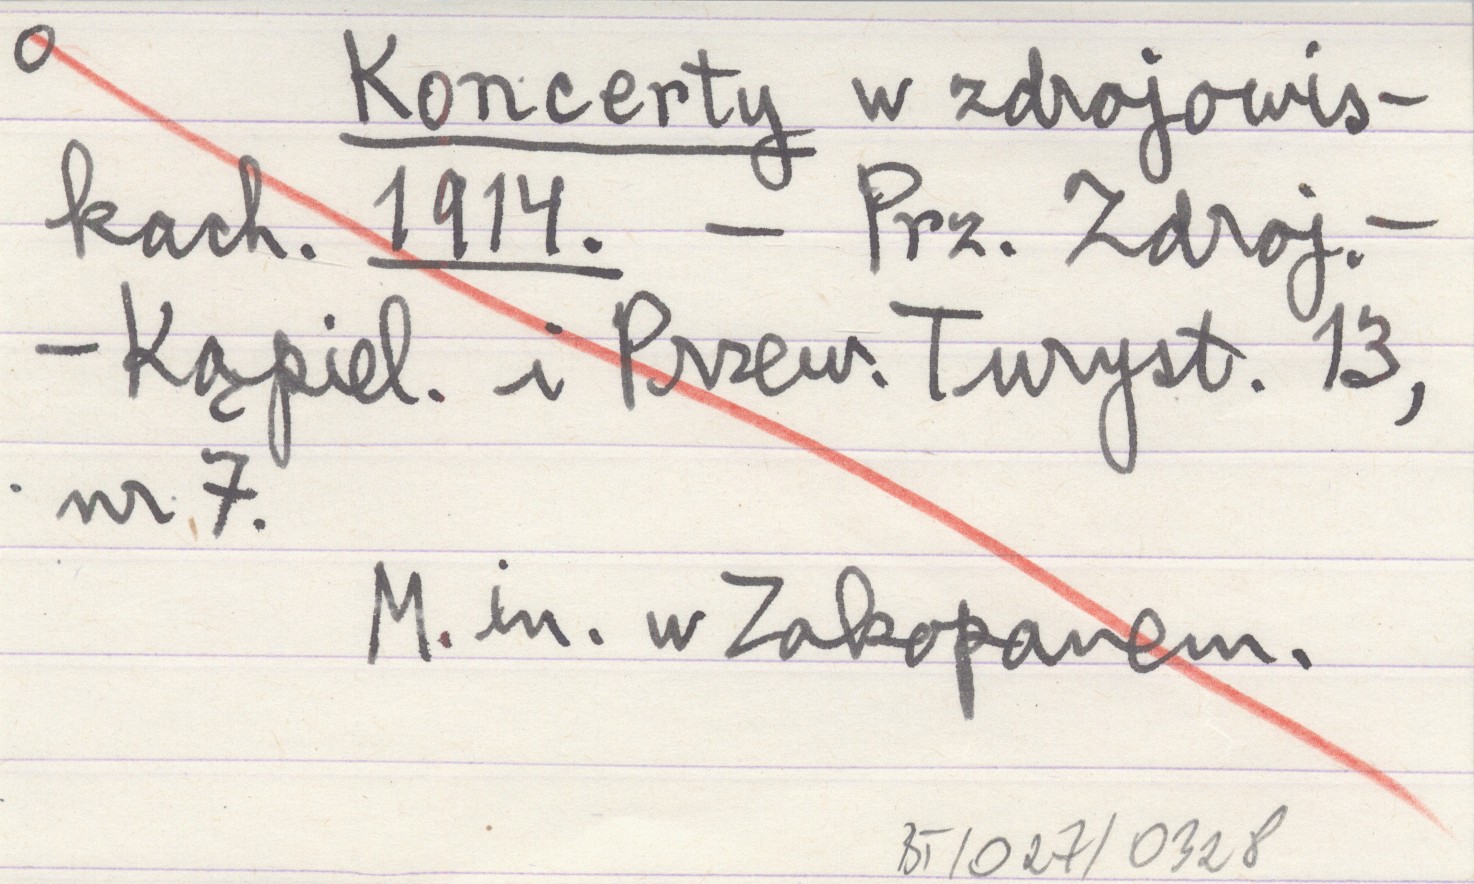 O
Koncerty w zdrojowis-
kach. 1914. — Prz. Zdroj.-
-Kąpiel. i Przew. Turyst. 13,
nr 7.
M. in. w Zakopanem.
BT/027/0328